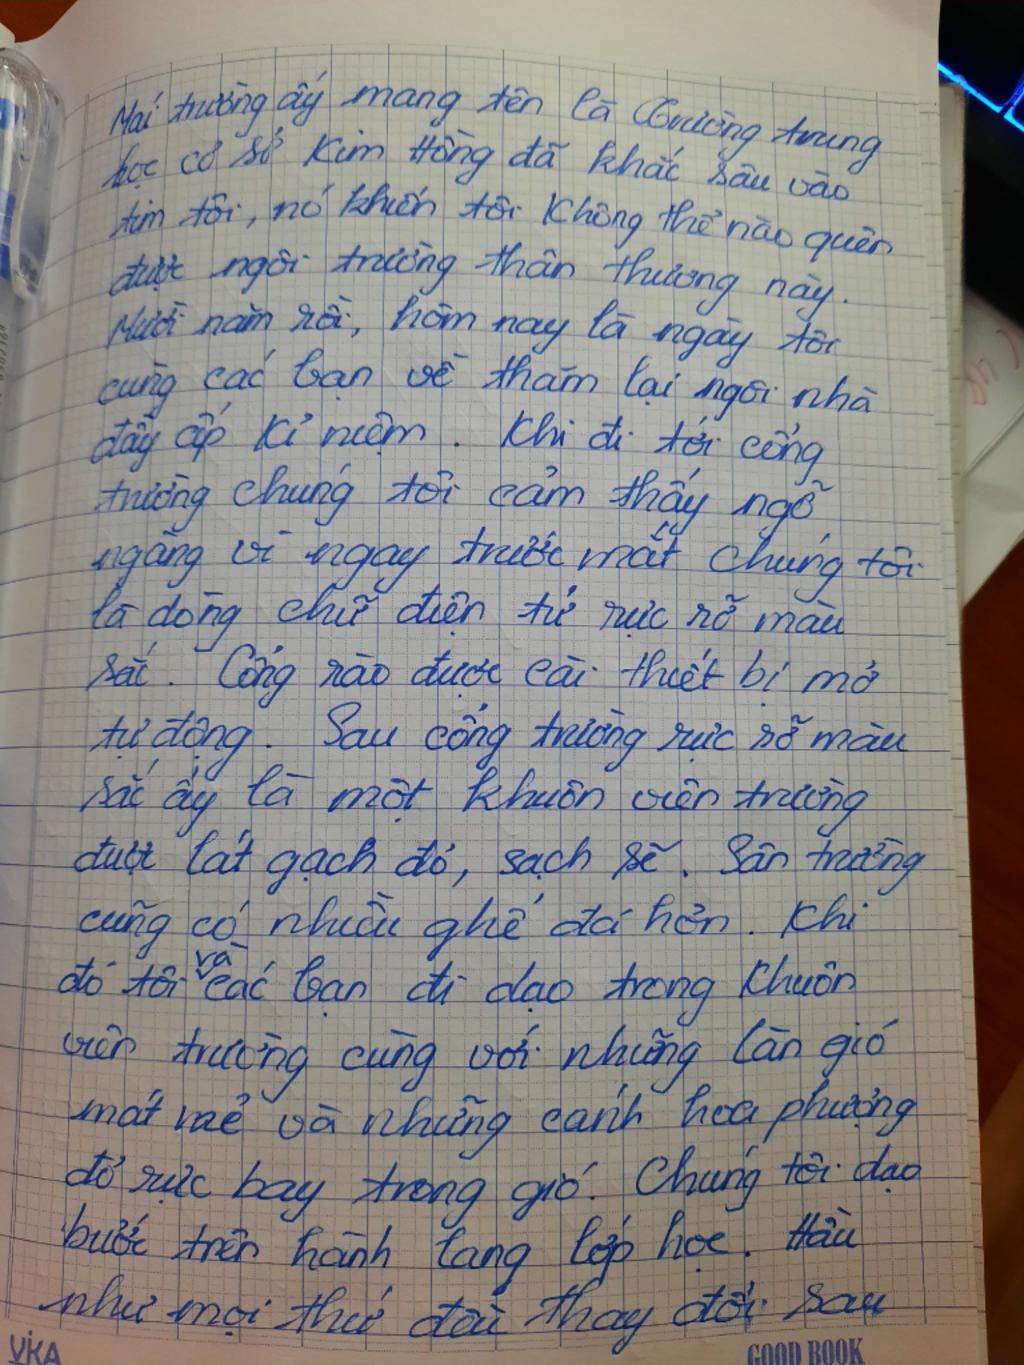 Mái trường ấy mang tên là Trường trung
học cơ sở Kim Hồng đã khắc sâu vào
tim tôi, nó khiến tôi không thể nào quên
được ngôi trường thân thương này.
Mười năm rồi, hôm nay là ngày tôi
cùng các bạn về thăm lại ngôi nhà
đầy ấp kỉ niệm. Khi đi tới cổng
trường chúng tôi cảm thấy ngỡ
ngàng vì ngay trước mắt chúng tôi
là dòng chữ điện tử rực rỡ màu
sắc. Cổng rào được cài thiết bị mở
tự động. Sau cổng trường rực rỡ màu
sắc ấy là một khuôn viên trường
được lát gạch đỏ, sạch sẽ. Sân trường
cũng có nhiều ghế đá hơn. Khi
đó tôi và các bạn đi dạo trong khuôn
viên trường cùng với những làn gió
mát mẻ và những cánh hoa phượng
đỏ rực bay trong gió. Chúng tôi dạo
bước trên hành lang lớp học. Hầu
như mọi thứ đều thay đổi sau
VIKA
GOOD BOOK